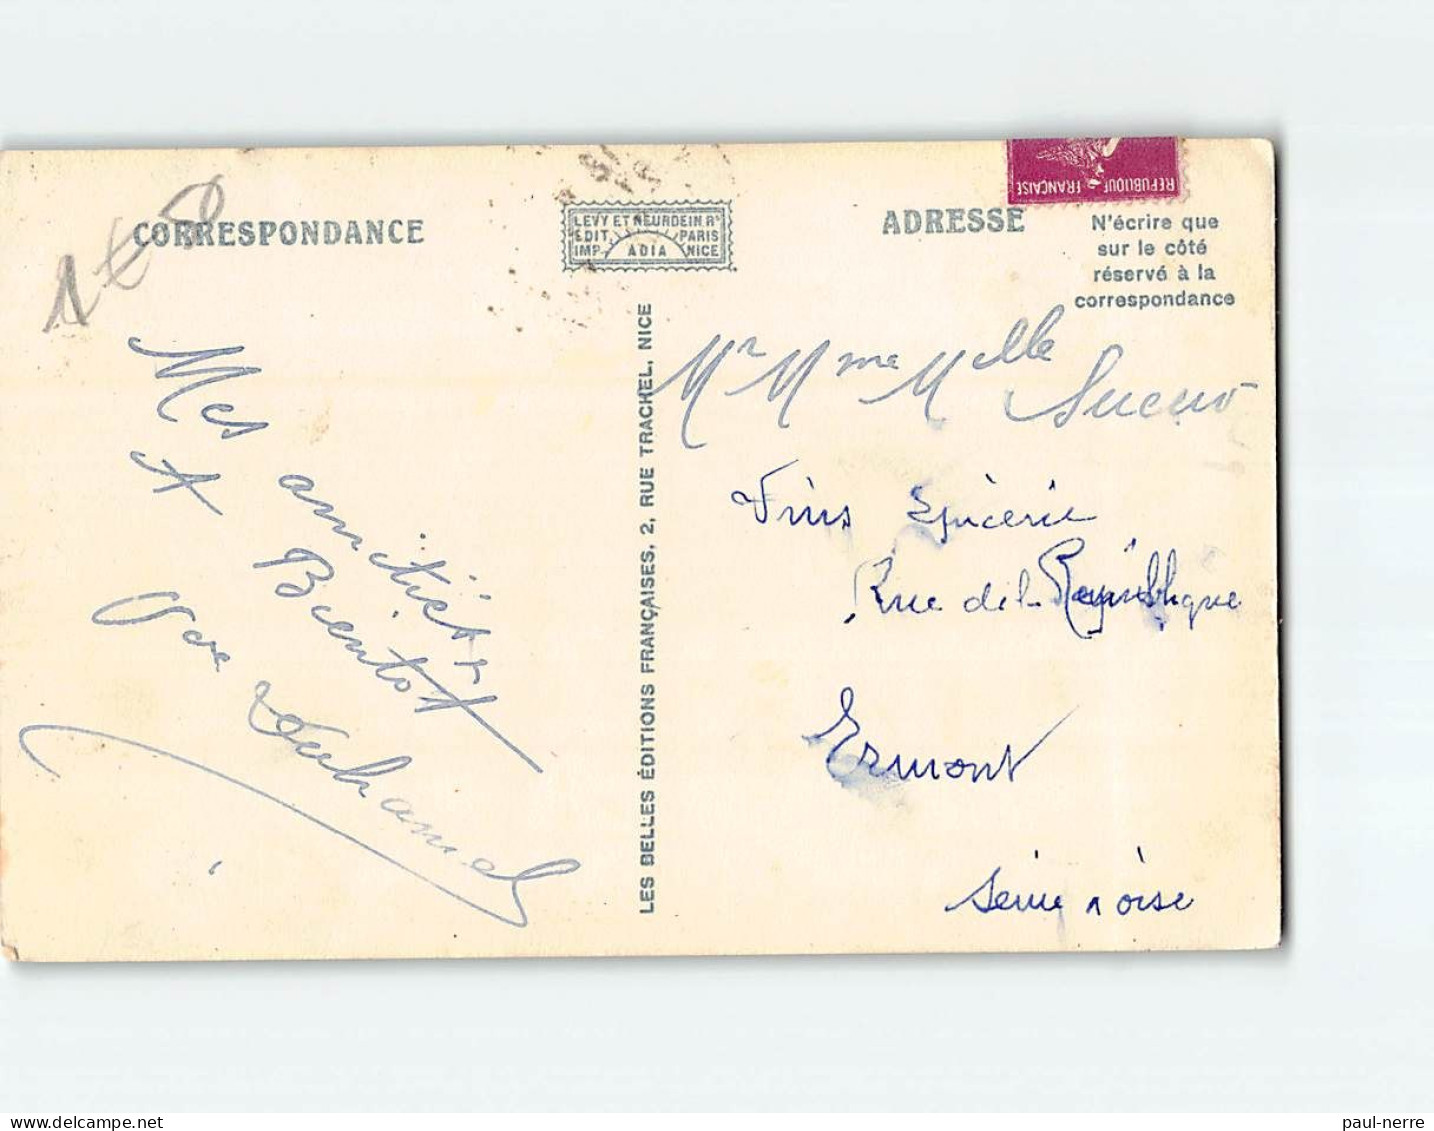 CORRESPONDANCE
1€50
Mes amitiés
A Bientot
Vve Duhamel
LEVY ET NEURDEIN Rs
EDIT. PARIS
IMP. ADIA NICE
LES BELLES ÉDITIONS FRANÇAISES, 2, RUE TRACHEL, NICE
REPUBLIQUE FRANÇAISE
ADRESSE
N'écrire que
sur le côté
réservé à la
correspondance
Mr Mme Melle
Vins Epicerie
Rue de la République
Ermont
Seine & oise
delcampe.net
paul-nerre